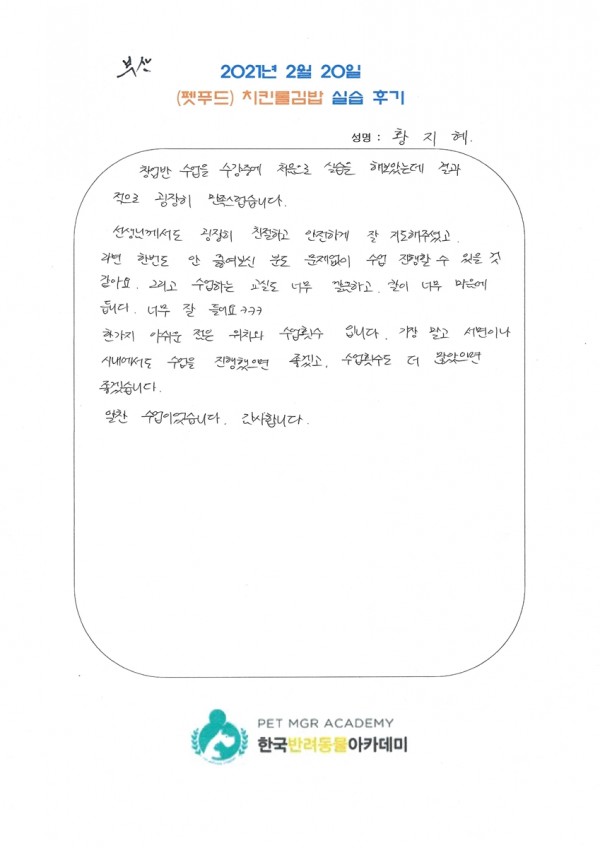 부산
2021년 2월 20일
(펫푸드) 치킨롤김밥 실습 후기
성명 : 황 지 혜.
창업반 수업을 수강중에 처음으로 실습을 해보았는데 결과
적으로 굉장히 만족스럽습니다.
선생님께서도 굉장히 친절하고 안전하게 잘 지도해주셨고
라면 한번도 안 끓여보신 분도 문제없이 수업 진행할 수 있을 것
같아요. 그리고 수업하는 교실도 너무 깔끔하고, 칼이 너무 마음에
듭니다. 너무 잘 들어요ㅋㅋㅋ
한가지 아쉬운 점은 위치와 수업횟수 입니다. 기장 말고 서면이나
시내에서도 수업을 진행했으면 좋겠고, 수업횟수도 더 많았으면
좋겠습니다.
알찬 수업이었습니다. 감사합니다.
PET MGR ACADEMY
한국반려동물아카데미